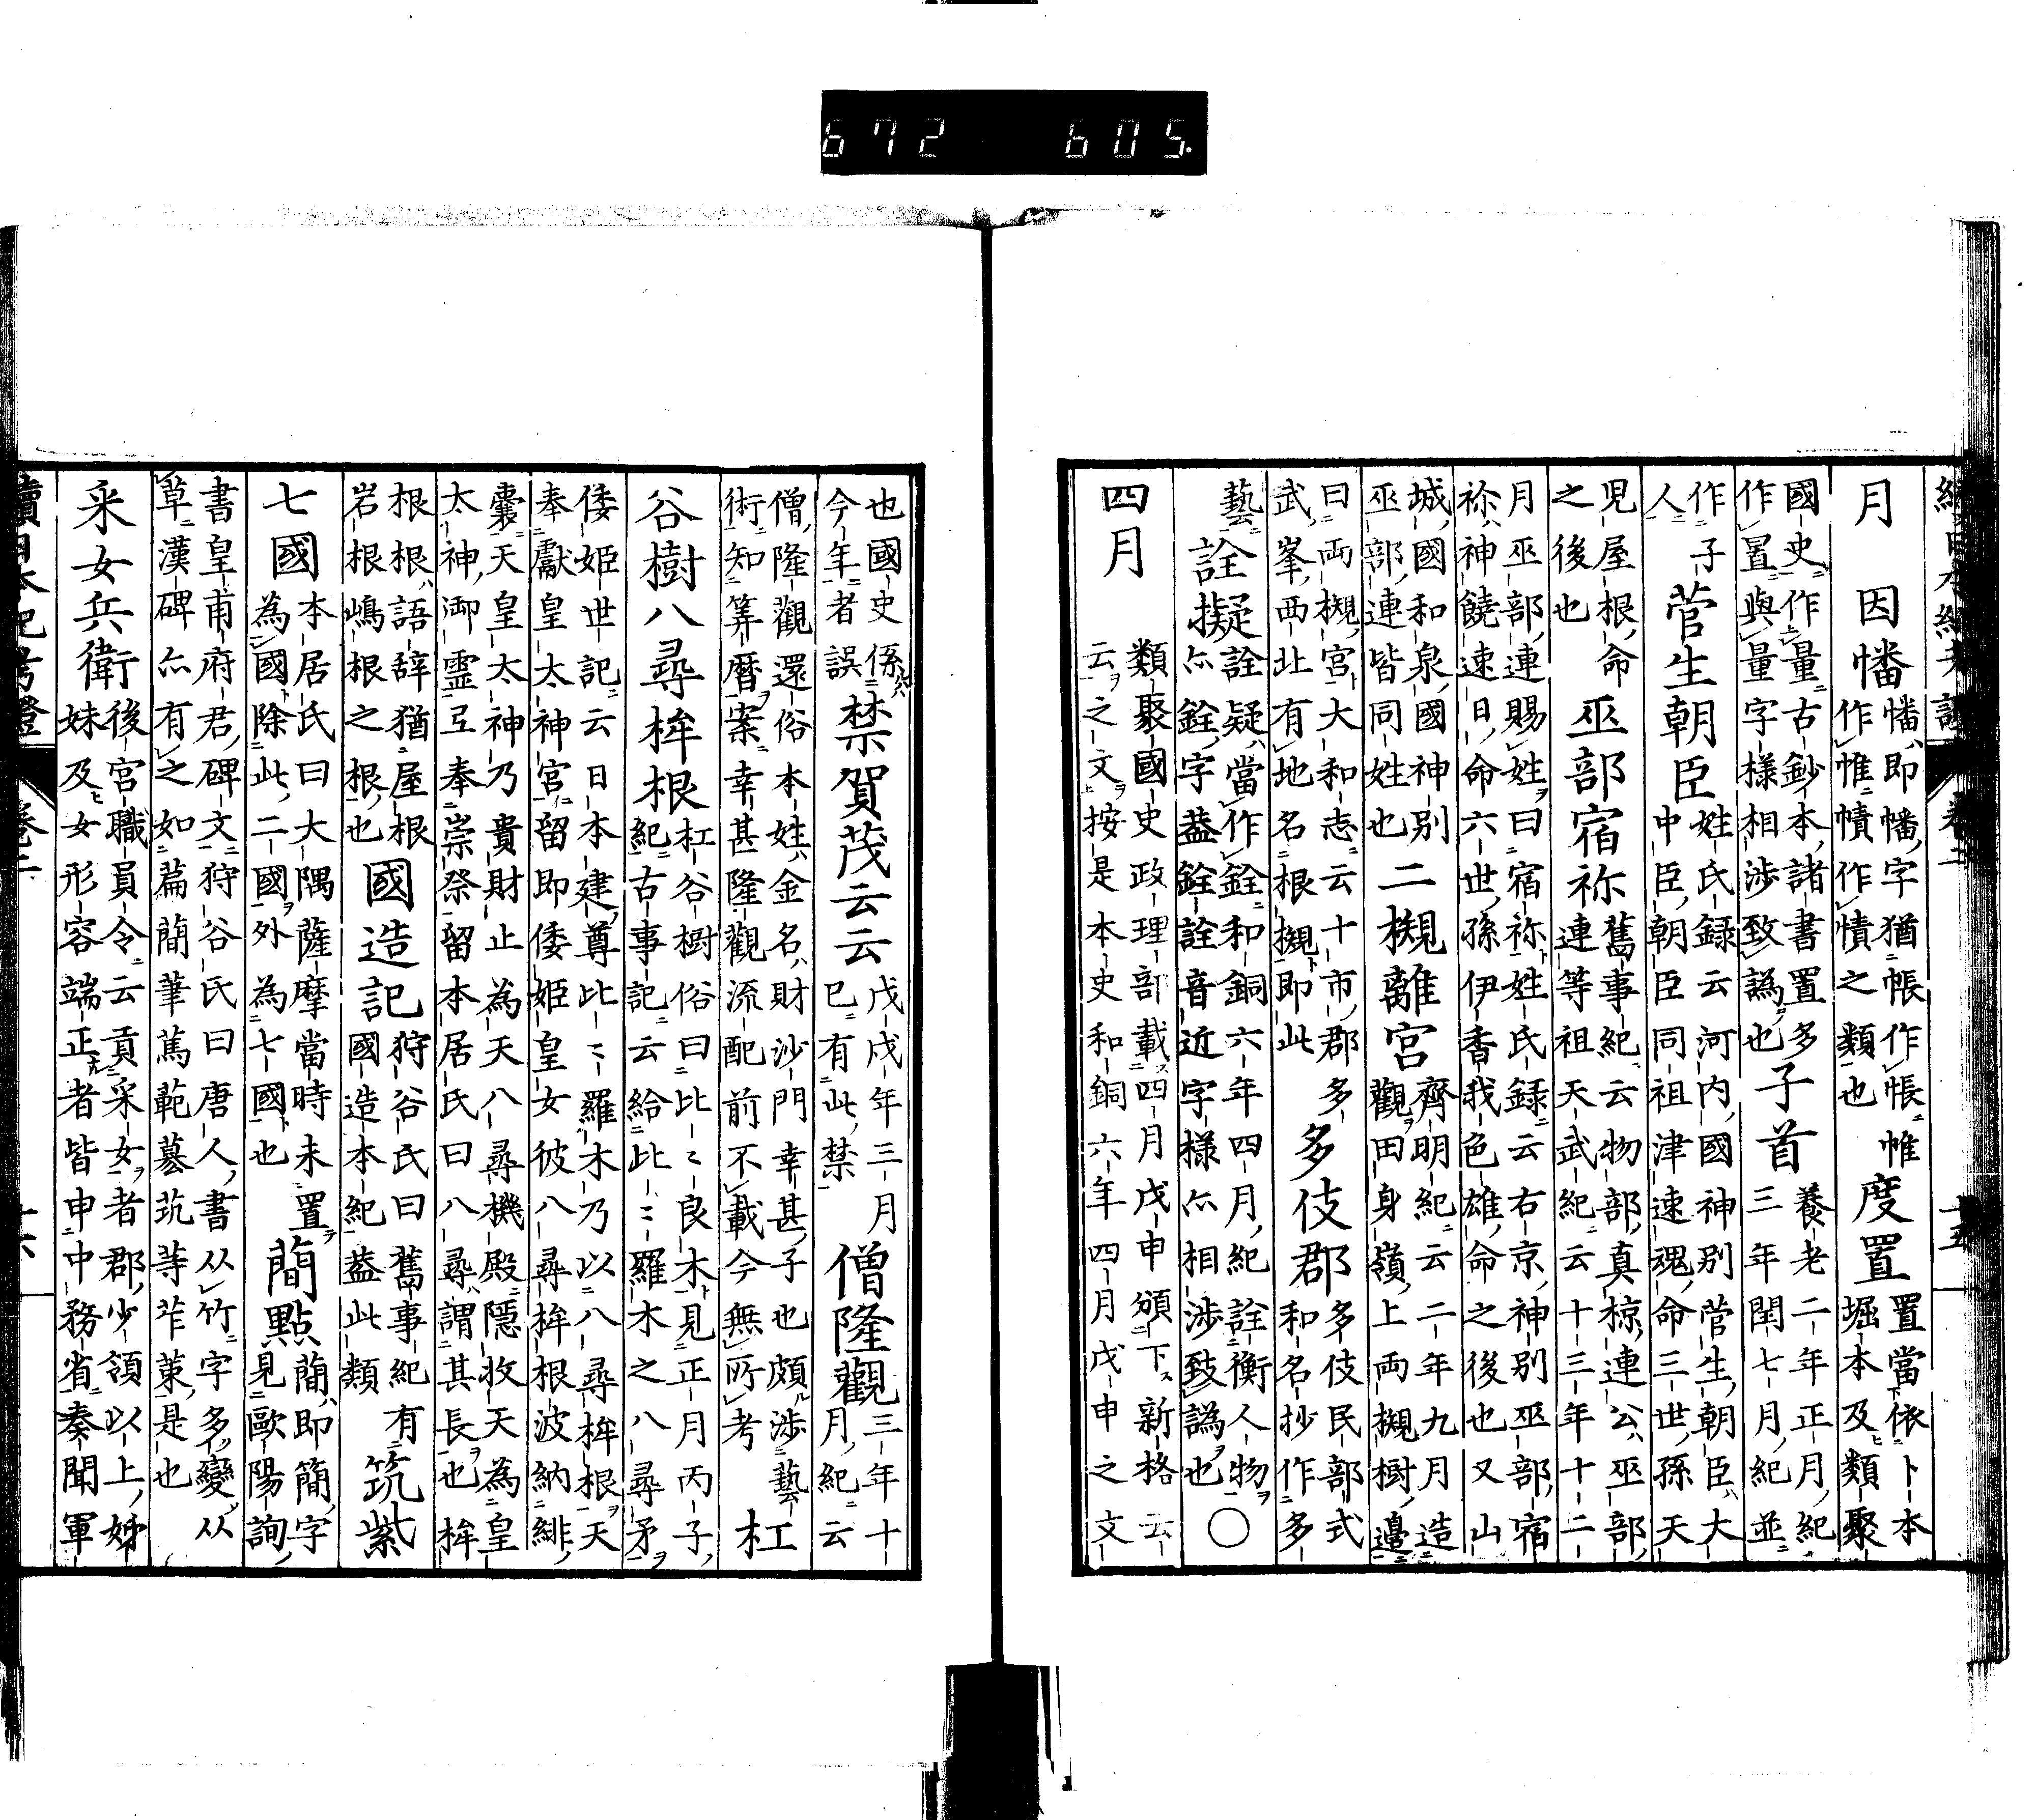 672 605.
月 因幡 幡即幡字猶帳作帳帷
作帷幘作憒之類也 度置 置當依卜本
堀本及類聚
國史作量古鈔本諸書置多
作置與量字樣相涉致譌也 子首 養老二年正月紀
三年閏七月紀並
作子
人 菅生朝臣 姓氏録云河内國神別菅生朝臣大
中臣朝臣同祖津速魂命三世孫天
兒屋根命
之後也 巫部宿祢 舊事紀云物部真椋連公巫部
連等祖天武紀云十三年十二
月巫部連賜姓曰宿祢姓氏録云右京神別巫部宿
祢神饒速日命六世孫伊香我色雄命之後也又山
城國和泉國神別
巫部連皆同姓也 二槻離宮 齊明紀云二年九月造
觀田身嶺上兩槻樹邊
曰両槻宮大和志云十市郡多
武峯西北有地名根槻即此 多伎郡 多伎民部式
和名抄作多
藝 詮擬 詮疑當作銓和銅六年四月紀詮衡人物
亦銓字葢銓詮音近字様亦相涉致譌也 〇
四月 類聚國史政理部載四月戊申頒下新格云
云之文按是本史和銅六年四月戊申之文
續日本紀考證 卷二 十五
也國史係
今年者誤 禁賀茂云云 戊戌年三月
巳有此禁 僧隆觀 三年十
月紀云
僧隆觀還俗本姓金名財沙門幸甚子也頗涉藝
術知筭曆案幸甚隆觀流配前不載今無所考 杠
谷樹八尋桙根 杠谷樹俗曰比比良木見正月丙子
紀古事記云給比比羅木之八尋矛
倭姫世記云日本建尊比比羅木乃以八尋桙根天
奉獻皇太神宮留即倭姫皇女彼八尋桙根波納緋
嚢天皇太神乃貴財止為天八尋機殿隱收天為皇
太神御霊弖奉崇祭留本居氏曰八尋謂其長也桙
根根語辞猶屋根
岩根嶋根之根也 國造記 狩谷氏曰舊事紀有
國造本紀葢此類 筑紫
七國 本居氏曰大隅薩摩當時未置
為國除此二國外為七國也 蕑點 蕑即簡字
見歐陽詢
書皇甫府君碑文狩谷氏曰唐人書从竹字多變从
草漢碑亦有之如萹蕑苐萬範墓筑等苲菄是也
采女兵衛 後宮職員令云貢采女者郡少領以上姊
妹及女形容端正者皆申中務省奏聞軍
續日本紀考證 卷二 十六